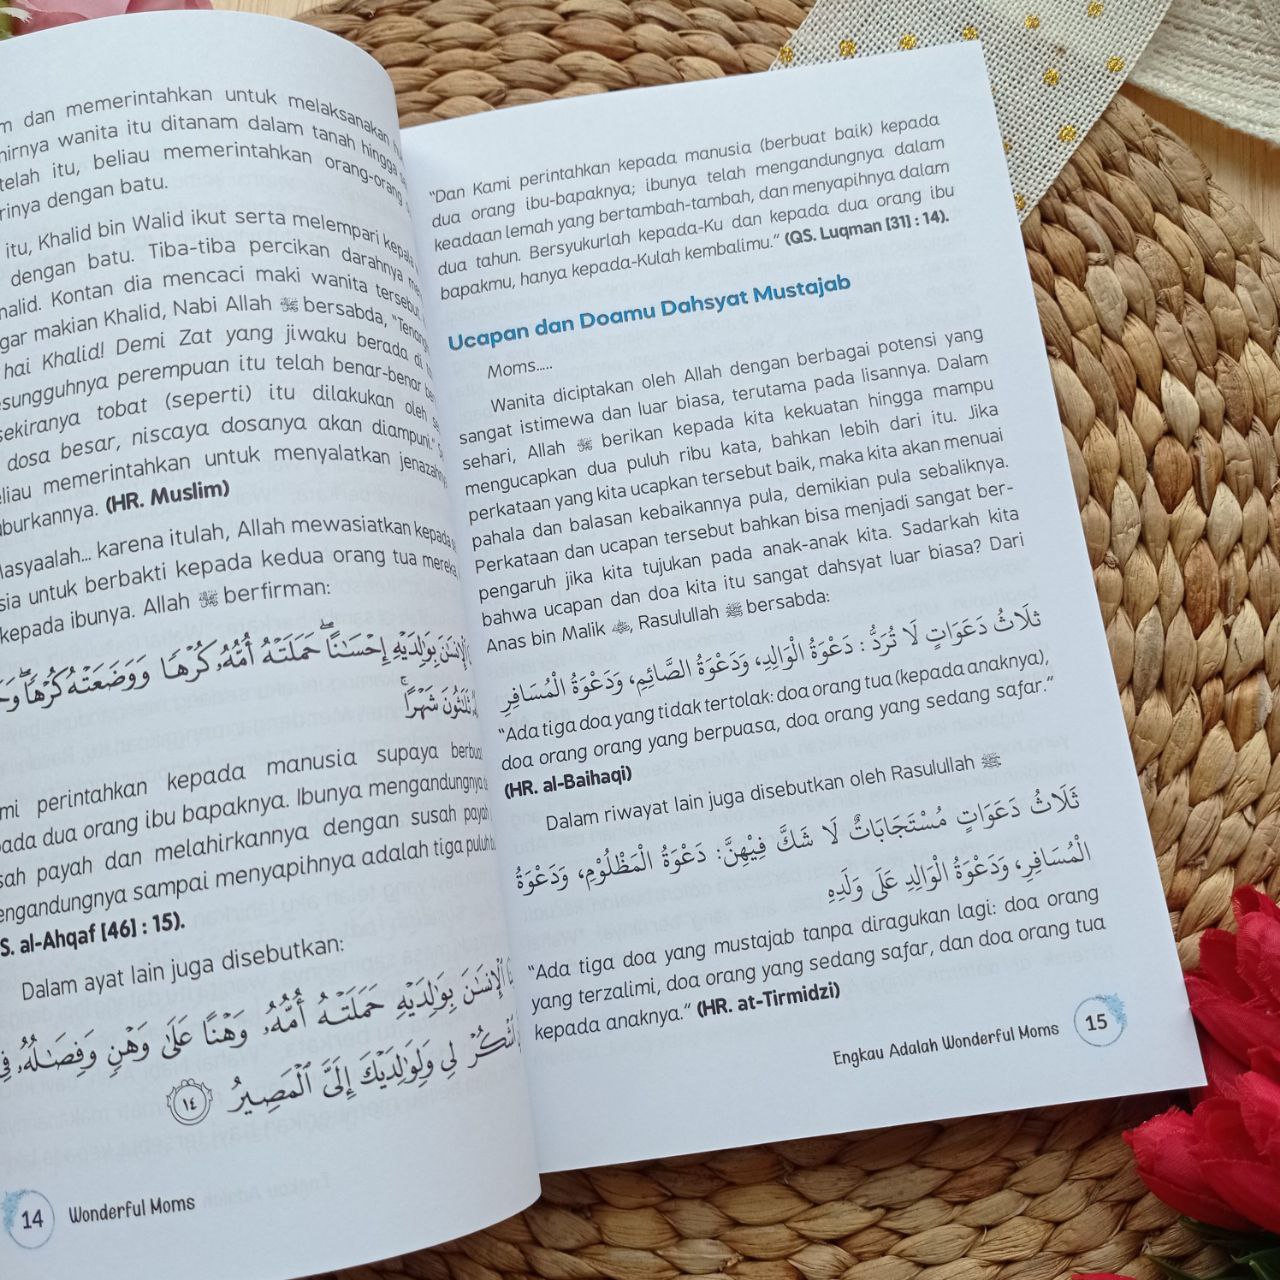 dan memerintahkan untuk melaksanakan
wanita itu ditanam dalam tanah hingga
itu, beliau memerintahkan orang-orang
dengan batu.
itu, Khalid bin Walid ikut serta melempari kepala
dengan batu. Tiba-tiba percikan darahnya
Kontan dia mencaci maki wanita tersebut
makian Khalid, Nabi Allah ﷺ bersabda,
hai Khalid! Demi Zat yang jiwaku berada di
perempuan itu telah benar-benar
tobat (seperti) itu dilakukan oleh
dosa besar, niscaya dosanya akan diampuni."
memerintahkan untuk menyalatkan
(HR. Muslim)
karena itulah, Allah mewasiatkan kepada
untuk berbakti kepada kedua orang tua mereka,
kepada ibunya. Allah ﷻ berfirman:
بِوَٰلِدَيْهِ إِحْسَٰنًا ۖ حَمَلَتْهُ أُمُّهُۥ كُرْهًا وَوَضَعَتْهُ كُرْهًا ۖ
ثَلَٰثُونَ شَهْرًا ۚ
perintahkan kepada manusia supaya
dua orang ibu bapaknya. Ibunya mengandungnya
payah dan melahirkannya dengan susah payah
sampai menyapihnya adalah tiga puluh
al-Ahqaf [46] : 15).
Dalam ayat lain juga disebutkan:
ٱلْإِنسَٰنَ بِوَٰلِدَيْهِ حَمَلَتْهُ أُمُّهُۥ وَهْنًا عَلَىٰ وَهْنٍ وَفِصَٰلُهُۥ
ٱشْكُرْ لِى وَلِوَٰلِدَيْكَ إِلَىَّ ٱلْمَصِيرُ ١٤
14 Wonderful Moms
"Dan Kami perintahkan kepada manusia (berbuat baik) kepada
dua orang ibu-bapaknya; ibunya telah mengandungnya dalam
keadaan lemah yang bertambah-tambah, dan menyapihnya dalam
dua tahun. Bersyukurlah kepada-Ku dan kepada dua orang ibu
bapakmu, hanya kepada-Kulah kembalimu." (QS. Luqman [31] : 14).
Ucapan dan Doamu Dahsyat Mustajab
Moms.....
Wanita diciptakan oleh Allah dengan berbagai potensi yang
sangat istimewa dan luar biasa, terutama pada lisannya. Dalam
sehari, Allah ﷻ berikan kepada kita kekuatan hingga mampu
mengucapkan dua puluh ribu kata, bahkan lebih dari itu. Jika
perkataan yang kita ucapkan tersebut baik, maka kita akan menuai
pahala dan balasan kebaikannya pula, demikian pula sebaliknya.
Perkataan dan ucapan tersebut bahkan bisa menjadi sangat ber-
pengaruh jika kita tujukan pada anak-anak kita. Sadarkah kita
bahwa ucapan dan doa kita itu sangat dahsyat luar biasa? Dari
Anas bin Malik, Rasulullah ﷺ bersabda:
ثَلَاثُ دَعَوَاتٍ لَا تُرَدُّ : دَعْوَةُ الْوَالِدِ، وَدَعْوَةُ الصَّائِمِ، وَدَعْوَةُ الْمُسَافِرِ
"Ada tiga doa yang tidak tertolak: doa orang tua (kepada anaknya),
doa orang orang yang berpuasa, doa orang yang sedang safar."
(HR. al-Baihaqi)
Dalam riwayat lain juga disebutkan oleh Rasulullah ﷺ
ثَلَاثُ دَعَوَاتٍ مُسْتَجَابَاتٌ لَا شَكَّ فِيْهِنَّ: دَعْوَةُ الْمَظْلُوْمِ، وَدَعْوَةُ
الْمُسَافِرِ، وَدَعْوَةُ الْوَالِدِ عَلَى وَلَدِهِ
"Ada tiga doa yang mustajab tanpa diragukan lagi: doa orang
yang terzalimi, doa orang yang sedang safar, dan doa orang tua
kepada anaknya." (HR. at-Tirmidzi)
Engkau Adalah Wonderful Moms 15